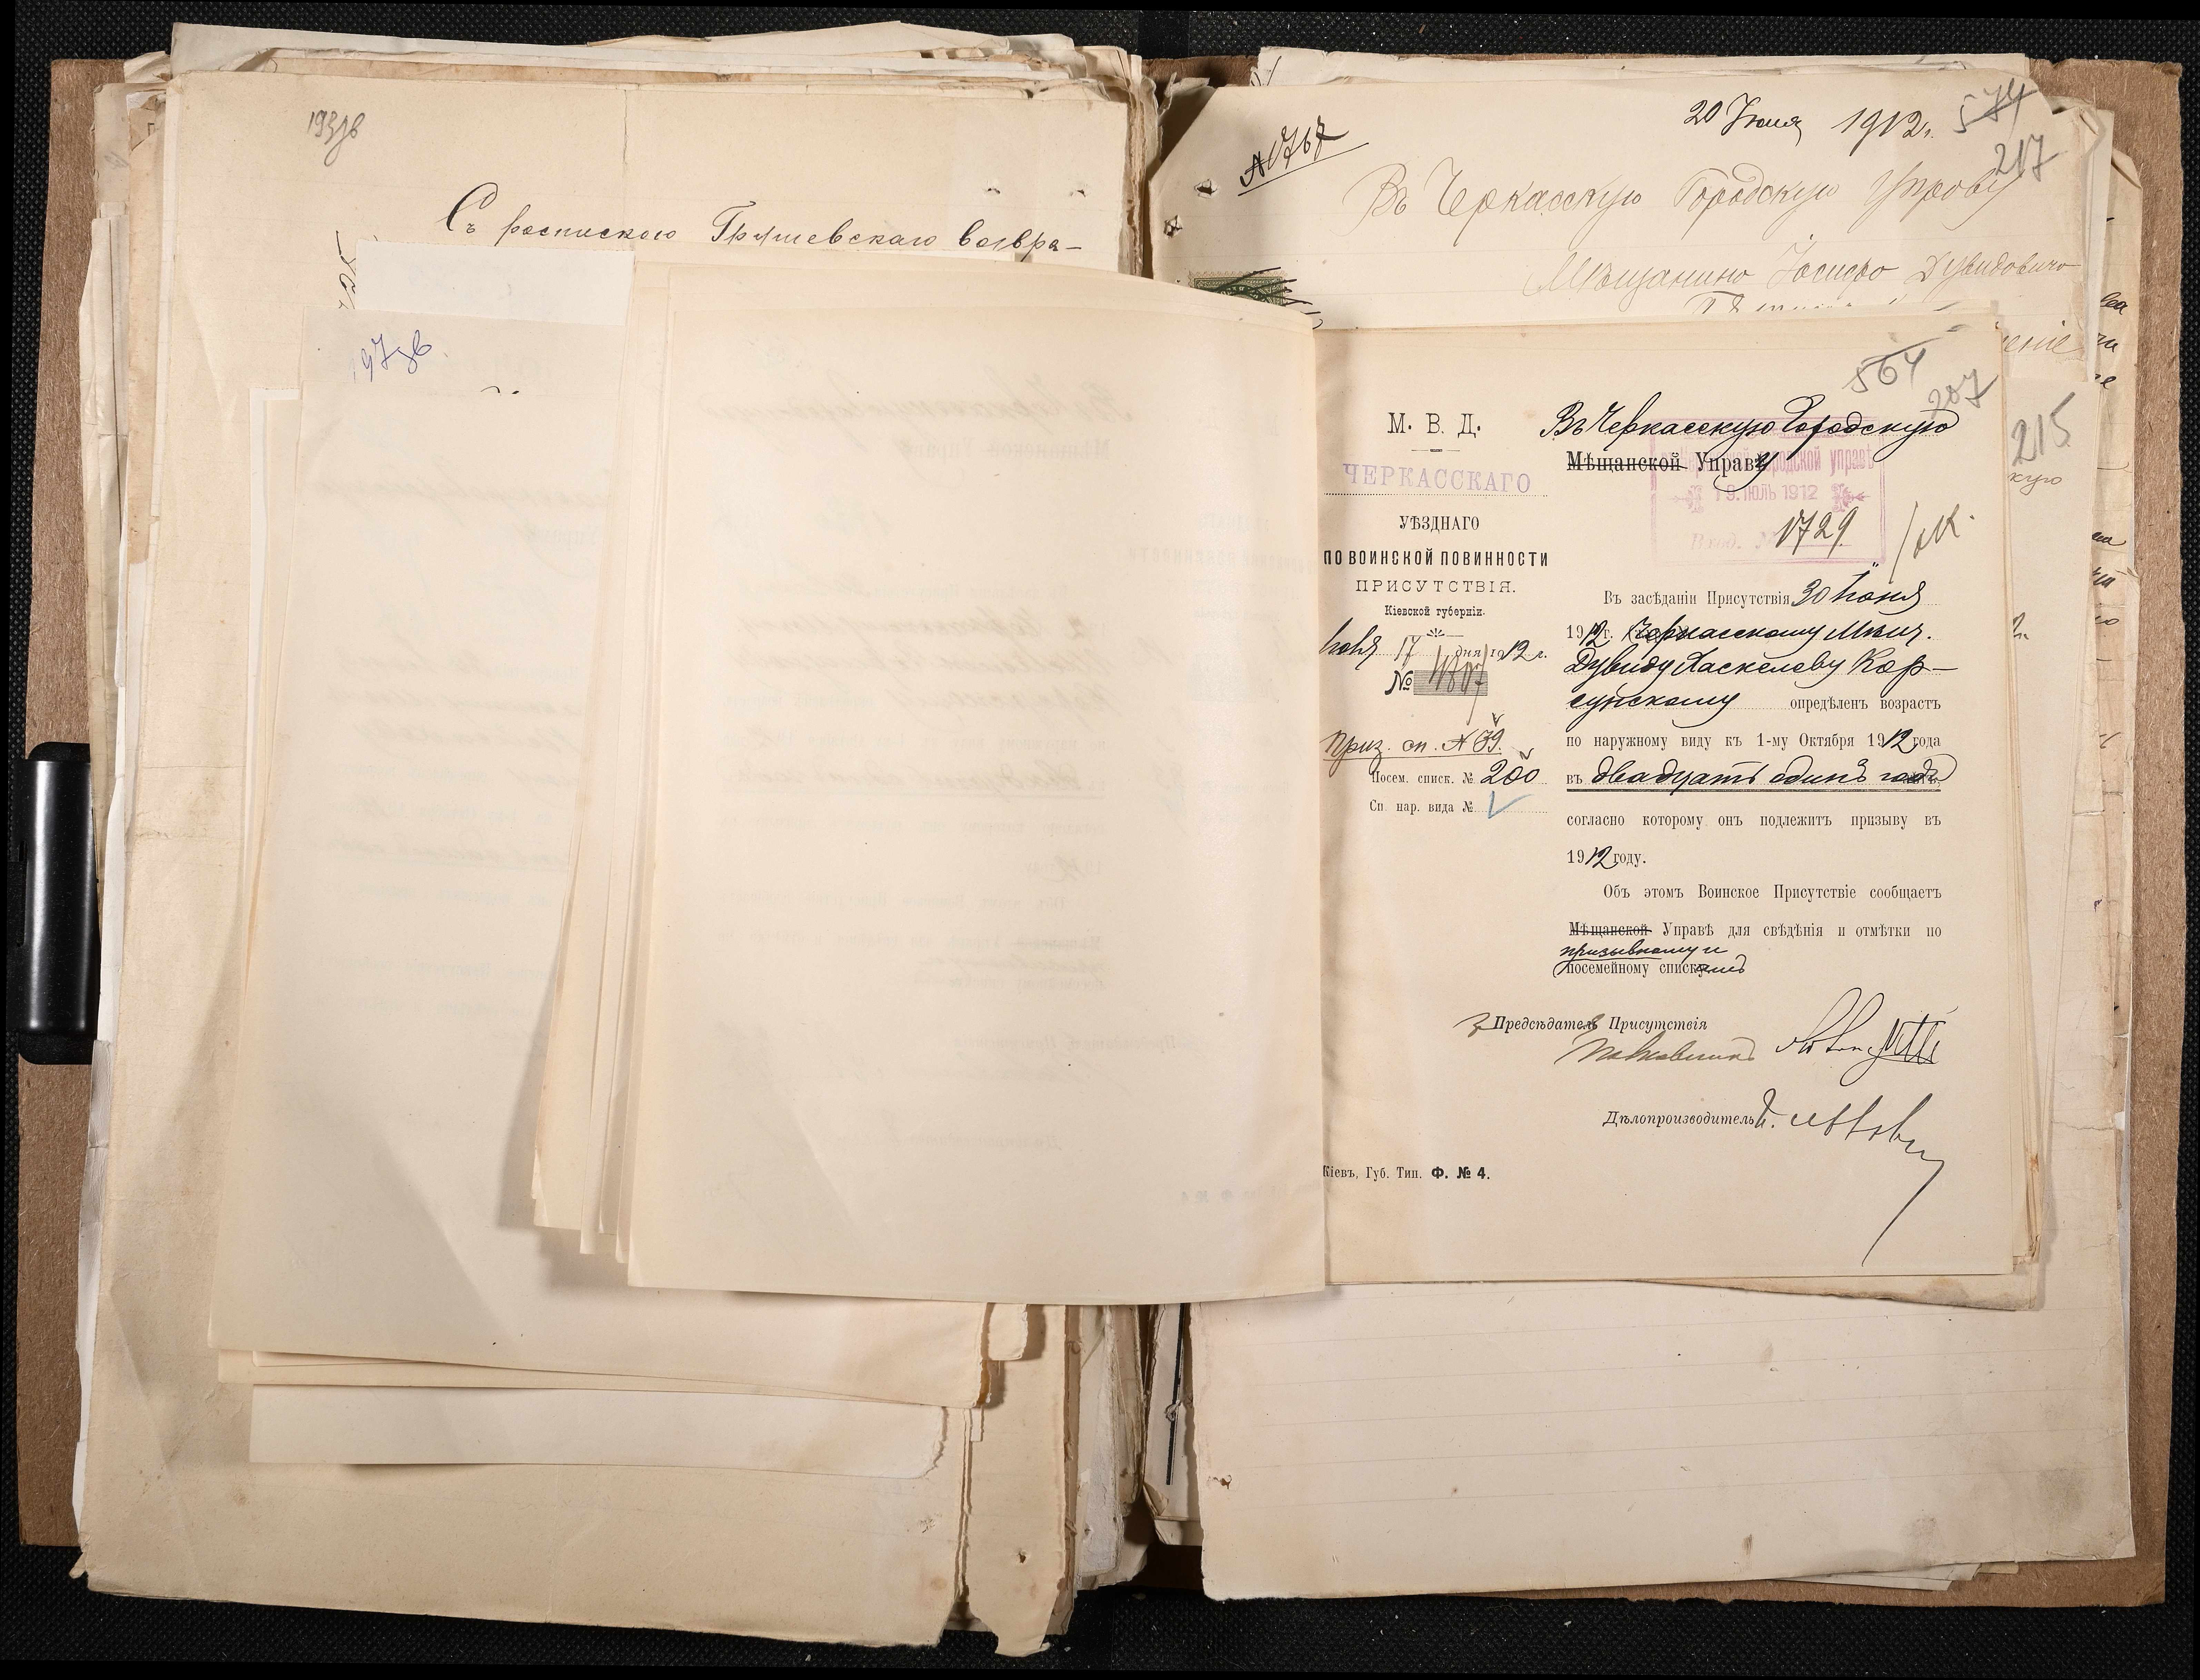 193зв
Съ роспискою Грушевскаго возвра-
197зв.
20 Іюля 1912 г.
574
217
№ 1767
Въ Черкасскую Городскую Управу
Мѣщанина Іосифа Дувидовича
ение
215
кую
564
207
М. В. Д.
ЧЕРКАССКАГО
УѢЗДНАГО
ПО ВОИНСКОЙ ПОВИННОСТИ
ПРИСУТСТВІЯ.
Кіевской губерніи.
Іюля 17 дня 1912 г.
№
Приз. сп. № 39.
Посем. списк. № 200
Сп. нар. вида №
Въ Черкасскую Городскую
Мѣщанской Управу
городской управѣ
19 ІЮЛЬ 1912
Вход. № 1729.
Въ засѣданіи Присутствія 30 Іюня
1912 г. Черкасскому Мѣщ.
Дувиду Хаскелеву Кор-
сунскому опредѣленъ возрастъ
по наружному виду къ 1-му Октября 1912 года
въ двадцать одинъ годъ
согласно которому онъ подлежитъ призыву въ
1912 году.
Объ этомъ Воинское Присутствіе сообщаетъ
Мѣщанской Управѣ для свѣдѣнія и отмѣтки по
призывному и
посемейному спискамъ
З. Предсѣдатель Присутствія
Полковникъ
Дѣлопроизводитель
Кіевъ, Губ. Тип. Ф. № 4.